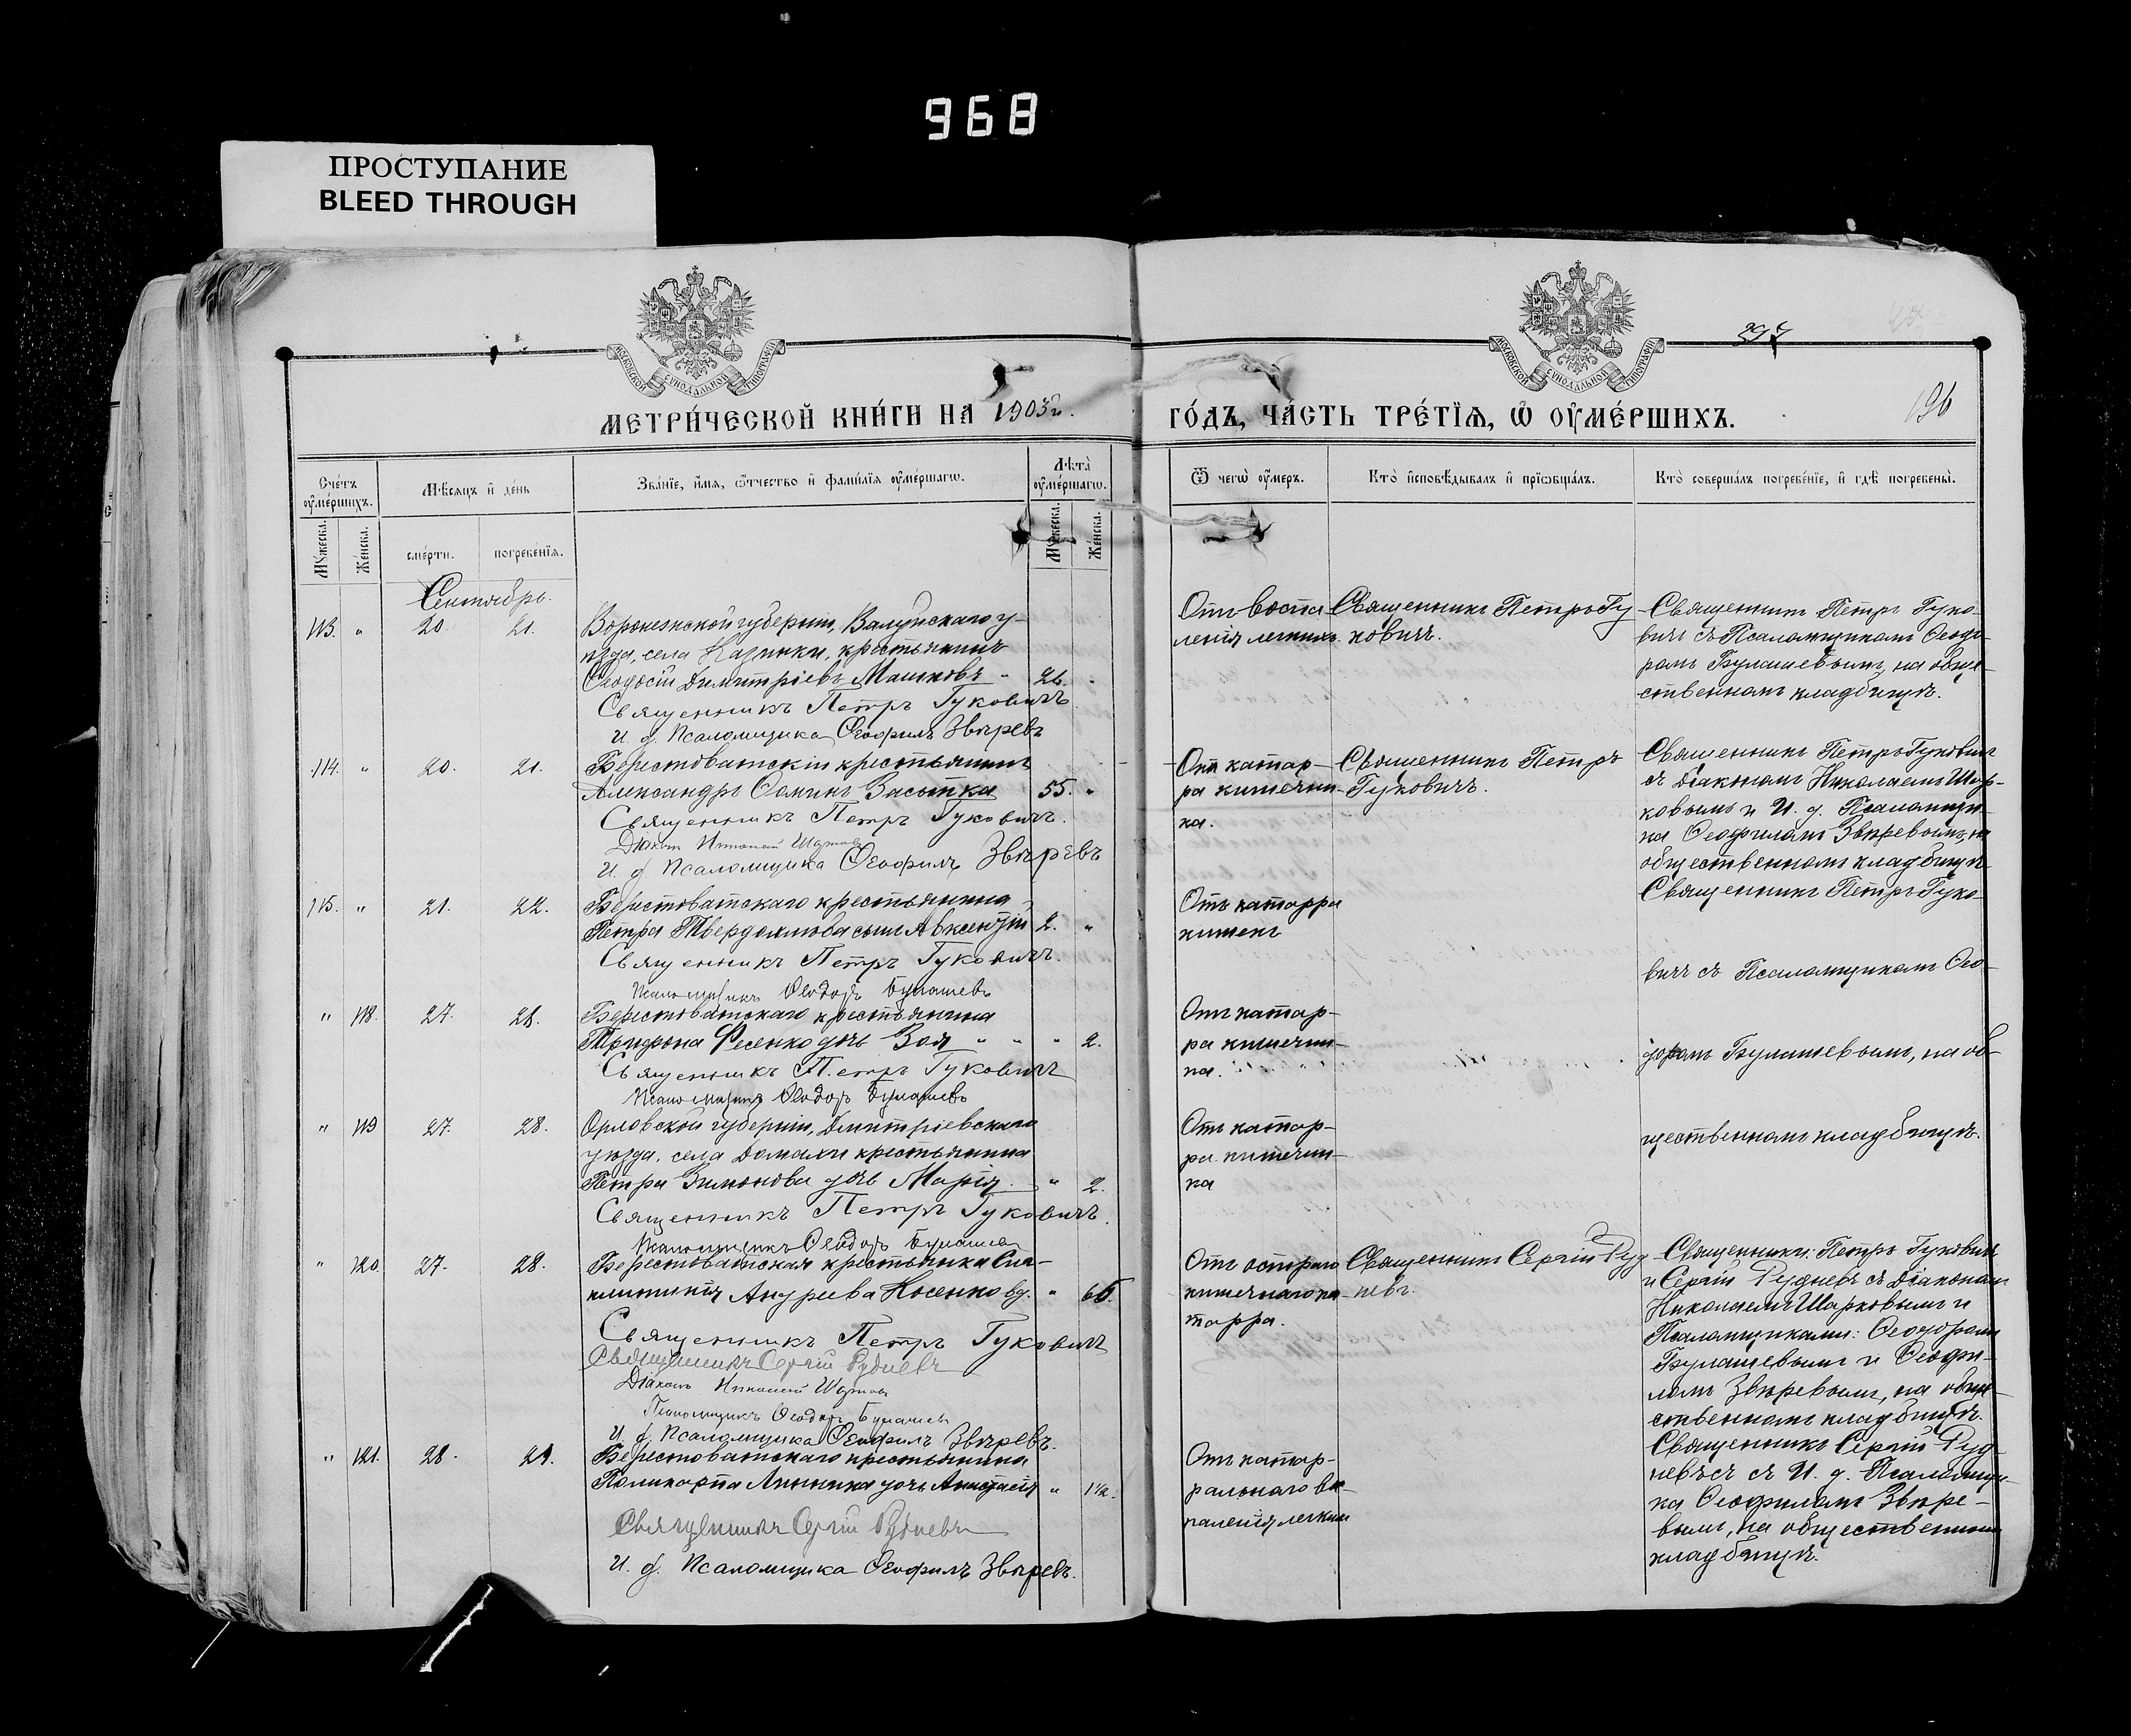 968
ПРОСТУПАНИЕ
BLEED THROUGH
МОСКОВСКОЙ СѴНОДАЛЬНОЙ ТИПОГРАФІИ
МОСКОВСКОЙ СѴНОДАЛЬНОЙ ТИПОГРАФІИ
297
196
МЕТРИ́ЧЕСКОЙ КНИ́ГИ НА 1903 г.
ГО́ДЪ, ЧА́СТЬ ТРЕ́ТІѦ, Ѽ ОУ҆МЕ́РШИХЪ.
Сче́тъ оу҆ме́ршихъ.
Мѣ́сяцъ и҆ де́нь
Зва́ніе, и҆́мя, ѻ҆́тчество и҆ фами́лія оу҆ме́ршагѡ.
Лѣта̀ оу҆ме́ршагѡ.
Ѿ чегѡ̀ оу҆́меръ.
Кто̀ и҆сповѣ́дывалъ и҆ прїѡбща́лъ.
Кто̀ соверша́лъ погребе́ніе, и҆ гдѣ̀ погребены̀.
Мꙋ́жеска.
Же́нска.
сме́рти.
погребе́нїя.
Мꙋ́жеска.
Же́нска.
Сентябрь.
113. " 20. 21.
Воронежской губерніи, Валуйскаго у-
ѣзда, села Казинки, крестьянинъ
Ѳеодосій Димитріевъ Машковъ " 26. "
Священникъ Петръ Гуковичъ
И. д. Псаломщика Ѳеофилъ Звѣревъ
Отъ воспа
ленія легкихъ.
Священникъ Петръ Гу
ковичъ.
Священникъ Петръ Гуко-
вичъ съ Псаломщикомъ Ѳеодо-
ромъ Булашевымъ, на обще-
ственномъ кладбищѣ.
114. " 20. 21.
Берестоватскій крестьянинъ
Александръ Ѳоминъ Засыпка 55. "
Священникъ Петръ Гуковичъ.
Діаконъ Николай Шарковъ
И. д. Псаломщика Ѳеофилъ Звѣревъ
Отъ катар-
ра кишечни-
ка.
Священникъ Петръ
Гуковичъ.
Священникъ Петръ Гуковичъ
съ Діакономъ Николаемъ Шар-
ковымъ и И. д. Псаломщи-
ка Ѳеофиломъ Звѣревымъ, на
общественномъ кладбищѣ
115. " 21. 22.
Берестоватскаго крестьянина
Петра Твердохлѣба сынъ Авксентій 2. "
Священникъ Петръ Гуковичъ.
Псаломщикъ Ѳеодоръ Булашевъ
Отъ катарра
кишекъ
Священникъ Петръ Гуко-
вичъ съ Псаломщикомъ Ѳео-
" 118. 27. 28.
Берестоватскаго крестьянина
Трифона Фесенко дочь Зоя " " " 2.
Священникъ Петръ Гуковичъ
Псаломщикъ Ѳеодоръ Булашевъ
Отъ катар-
ра кишечни-
ка.
доромъ Булашевымъ, на об-
" 119 27. 28.
Орловской губерніи, Дмитріевскаго
уѣзда, села Домахи крестьянина
Петра Зимонова дочь Марія. " 2.
Священникъ Петръ Гуковичъ.
Псаломщикъ Ѳеодоръ Булашевъ
Отъ катар-
ра кишечни-
ка
щественномъ кладбищѣ.
" 120 27. 28.
Берестоватская крестьянка Син-
клитикія Андреева Носенко вд. " 66.
Священникъ Петръ Гуковичъ
Священникъ Сергій Рудневъ
Діаконъ Николай Шарковъ
Псаломщикъ Ѳеодоръ Булашевъ
И. д. Псаломщика Ѳеофилъ Звѣревъ.
Отъ остраго
кишечнаго ка-
тарра.
Священникъ Сергій Руд
невъ.
Священники: Петръ Гуковичъ
и Сергій Рудневъ съ Діакономъ
Николаемъ Шарковымъ и
Псаломщиками: Ѳеодоромъ
Булашевымъ и Ѳеофи-
ломъ Звѣревымъ, на обще-
ственномъ кладбищѣ.
" 121. 28. 29.
Берестоватскаго крестьянина
Поликарпа Линника дочь Анастасія " 1 1/2.
Священникъ Сергій Рудневъ
И. д. Псаломщика Ѳеофилъ Звѣревъ.
Отъ катар-
ральнаго во-
спаленія легкихъ
Священникъ Сергій Руд-
невъ съ И. д. Псаломщи-
ка Ѳеофиломъ Звѣре-
вымъ, на общественномъ
кладбищѣ.